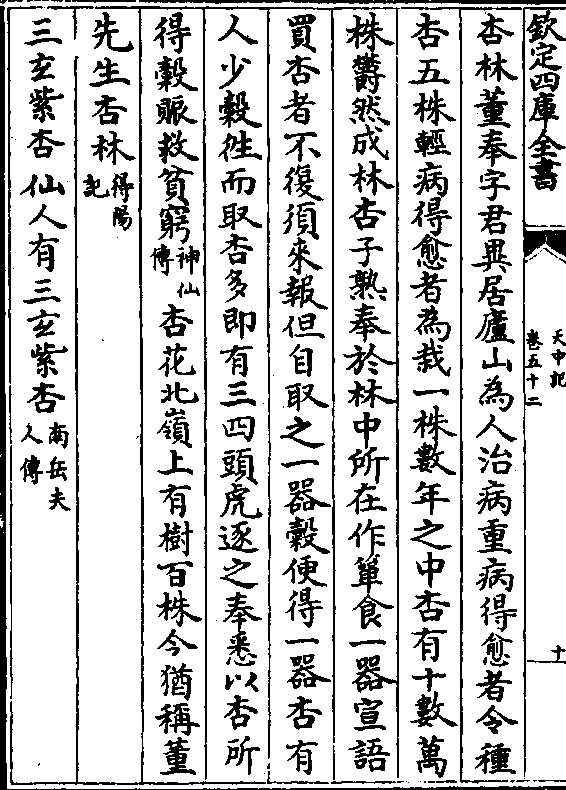 欽定四庫全書
天中記
卷五十二
十
杏林董奉字君異居廬山為人治病重病得愈者令種
杏五株輕病得愈者為栽一株數年之中杏有十數萬
株欝然成林杏子熟奉於林中所在作簞食一器宣語
買杏者不復須來報但自取之一器穀便得一器杏有
人少穀徃而取杏多即有三四頭虎逐之奉悉以杏所
得穀賑救貧窮神仙傳杏花北嶺上有樹百株今猶稱董
先生杏林得陽記
三玄紫杏仙人有三玄紫杏南岳夫人傳